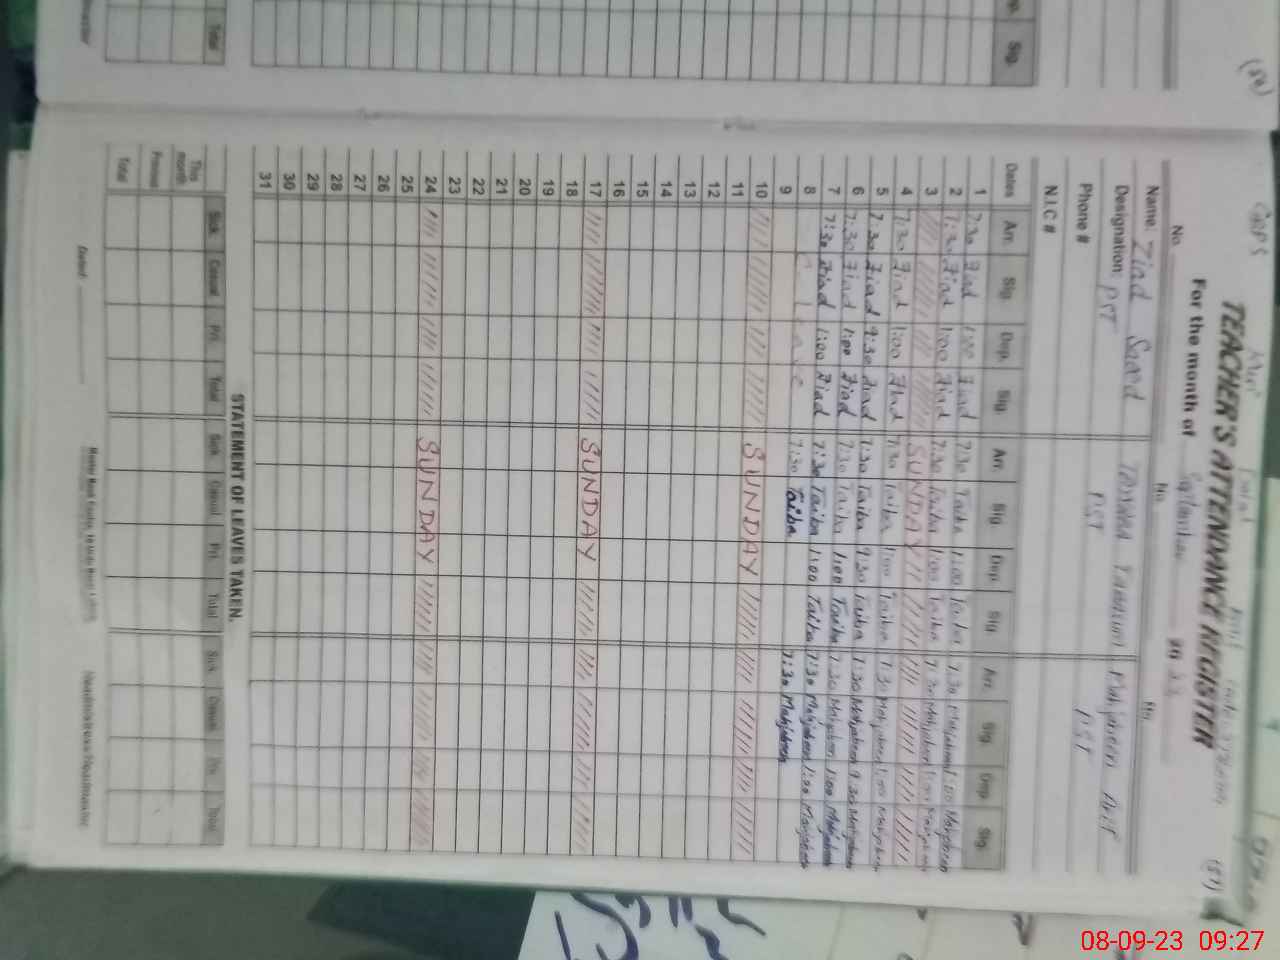 (50)
Sig.
Total
(51)
TEACHER'S ATTENDANCE REGISTER
For the month of September 20 23
No. No. No.
Name: Ziad Saeed Tabassum Mahjabeen Arif
Designation: PST PST PST
Phone #
N.I.C #
Dates Arr. Sig. Dep. Sig. Arr. Sig. Dep. Sig. Arr. Sig. Dep. Sig.
1 7:30 Ziad 1:00 Ziad 7:30 Taiba 1:00 Taiba 7:30 Mahjabeen 1:00 Mahjabeen
2 7:30 Ziad 1:00 Ziad 7:30 Taiba 1:00 Taiba 7:30 Mahjabeen 1:00 Mahjabeen
3 SUNDAY
4 7:30 Ziad 1:00 Ziad 7:30 Taiba 1:00 Taiba 7:30 Mahjabeen 1:00 Mahjabeen
5 7:30 Ziad 9:30 Ziad 7:30 Taiba 9:30 Taiba 7:30 Mahjabeen 9:30 Mahjabeen
6 7:30 Ziad 1:00 Ziad 7:30 Taiba 1:00 Taiba 7:30 Mahjabeen 1:00 Mahjabeen
7 7:30 Ziad 1:00 Ziad 7:30 Taiba 1:00 Taiba 7:30 Mahjabeen 1:00 Mahjabeen
8 Leave 7:30 Taiba 7:30 Mahjabeen
9
10 SUNDAY
11
12
13
14
15
16
17 SUNDAY
18
19
20
21
22
23
24 SUNDAY
25
26
27
28
29
30
31
STATEMENT OF LEAVES TAKEN.
Sick Casual Pri. Total Sick Casual Pri. Total Sick Casual Pri. Total
This month
Previous
Total
Dated Headmistress/Headmaster
08-09-23 09:27